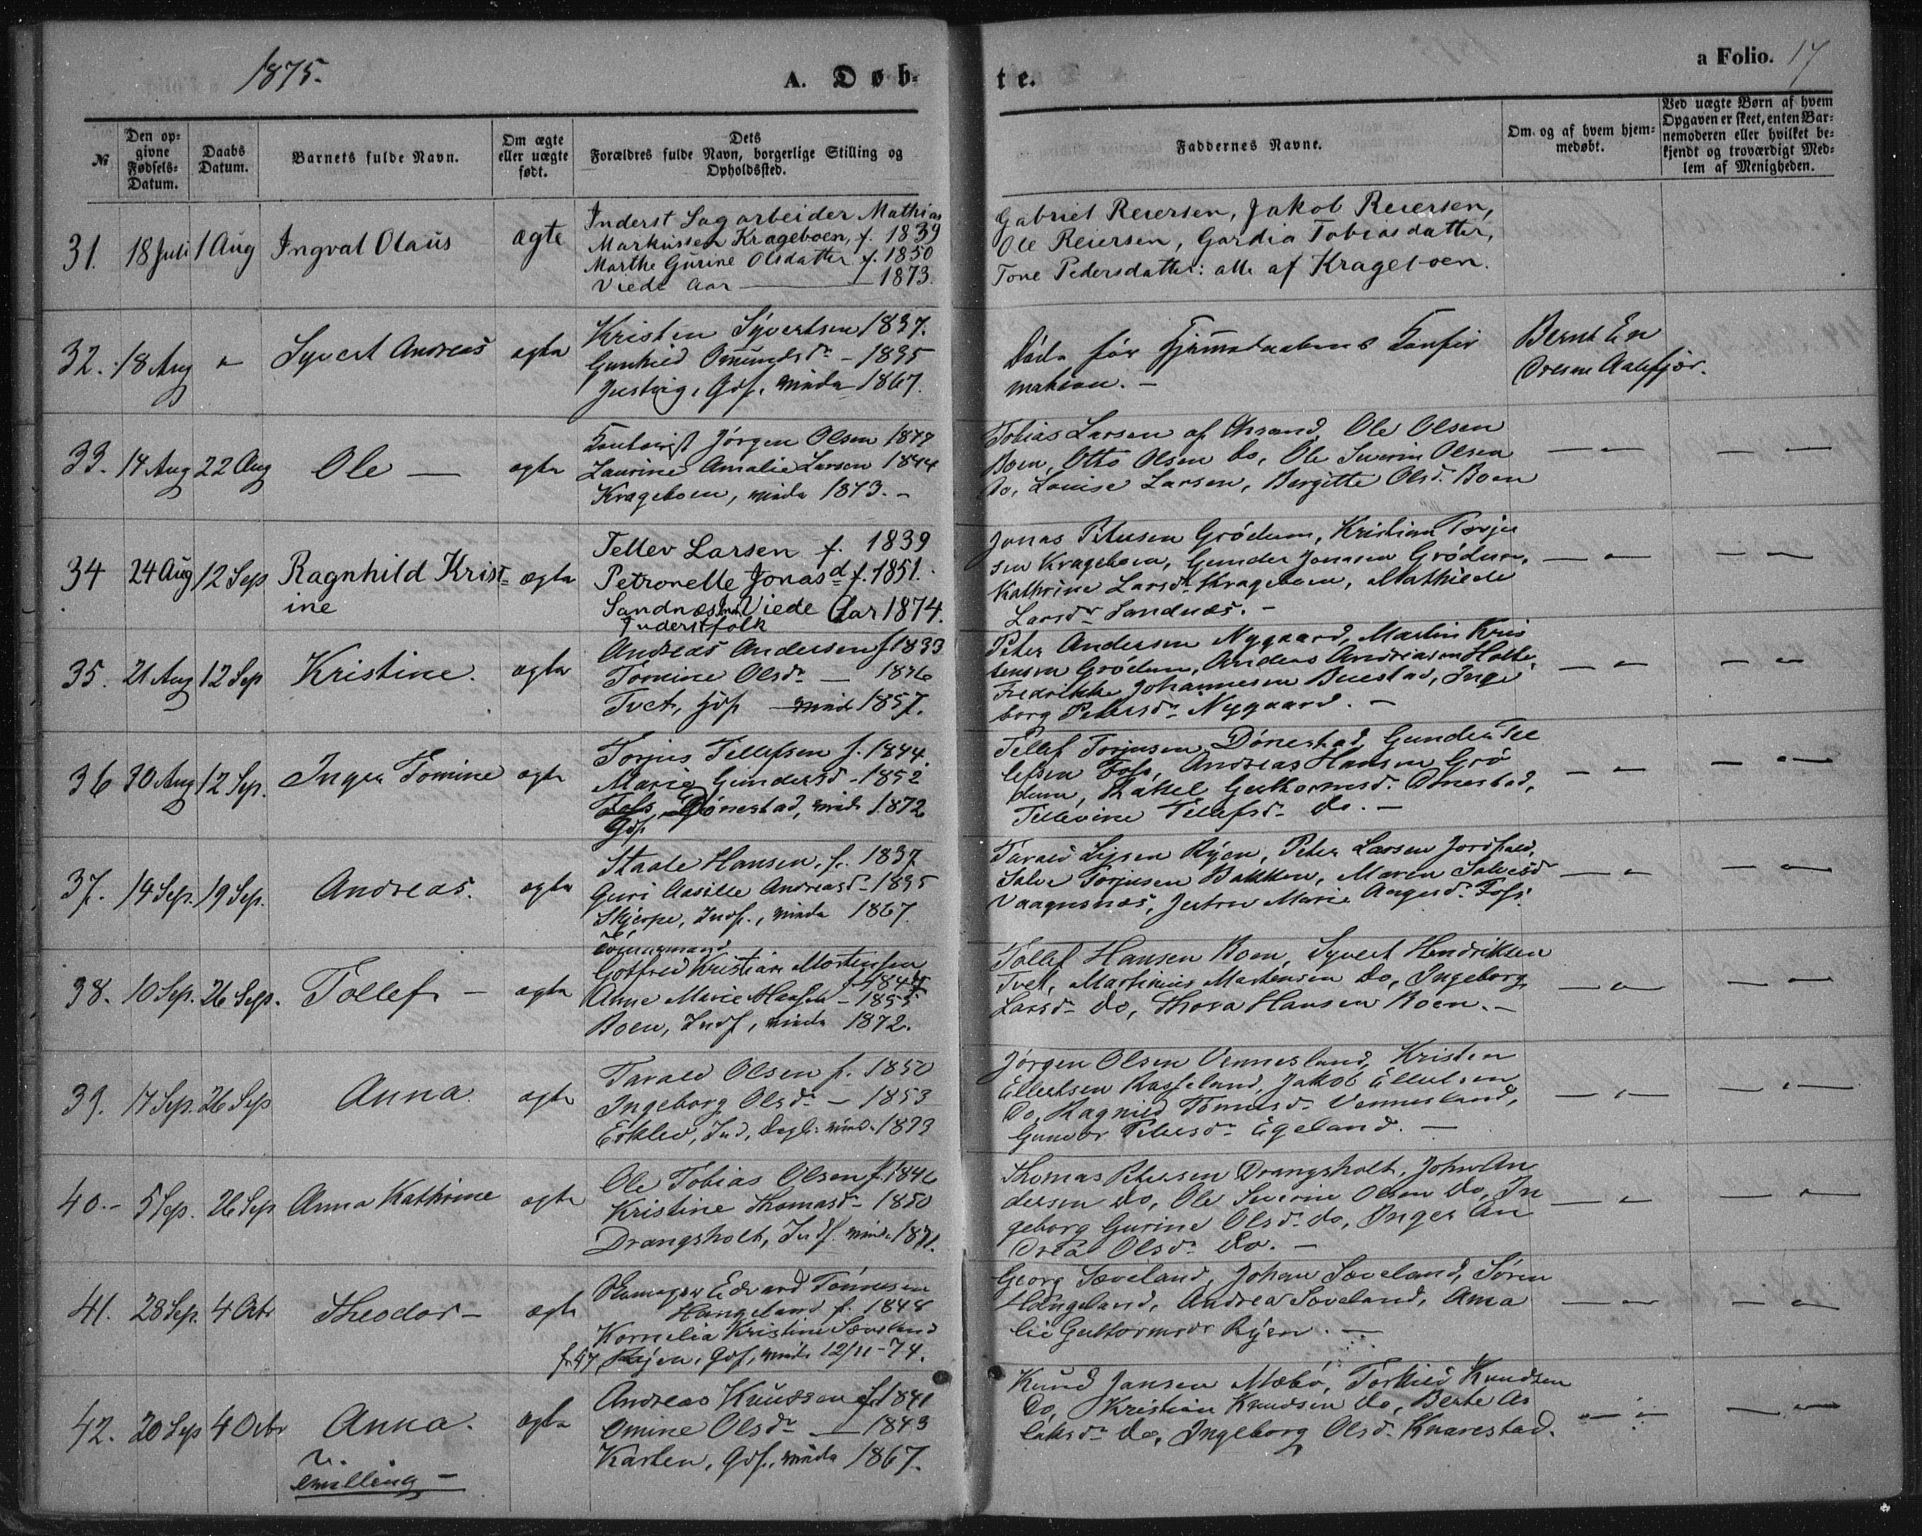 1875.
A. Døb-
te.
a Folio. 17
№
Den op-
givne
Fødsels-
Datum.
Daabs
Datum.
Barnets fulde Navn.
Om ægte
eller uægte
født.
Dets
Forældres fulde Navn, borgerlige Stilling og
Opholdssted.
Faddernes Navne.
Om og af hvem hjem-
medøbt.
Ved uægte Børn af hvem
Opgaven er skeet, enten Bar-
nemoderen eller hvilket be-
kjendt og troværdigt Med-
lem af Menigheden.
31. 18 Juli 1 Aug Ingval Olaus ægte
Inderst Sagarbeider Mathias
Markussen Krageboen, f. 1839
Marthe Gurine Olsdatter f. 1850
Viede Aar — 1873.
Gabriel Reiersen, Jakob Reiersen,
Ole Reiersen, Gardia Tobiasdatter,
Tone Pedersdatter: alle af Krageboen.
32. 18 Aug Syvert Andreas ægte
Kristen Syvertsen 1837.
Gunhild Omundsdr — 1835
Justvig, Gdf, viede 1867.
Døde før Hjemmedaabens Konfir
mation. —
Bernt En
Dresen Aalefjær.
33. 14 Aug 22 Aug Ole — ægte
Jørgen Olsen 1847
Laurine Amalie Larsen 1844
Krageboen, viede 1873. —
Tobias Larsen af Krsand, Ole Olsen
Boen, Otto Olsen do, Ole Severin Olsen
do, Louise Larsen, Birgitte Olsd. Boen
34 24 Aug 12 Sep Ragnhild Krist-
ine ægte
Tellev Larsen f. 1839
Petronelle Jonasd f. 1851.
Sandnæs Viede Aar 1874.
Inderstfolk
Jonas Petersen Grødum, Kristian Torju
sen Krageboen, Gunder Jonasen Grødum,
Kathrine Larsdr Krageboen, Mathilde
Larsdr Sandnæs. —
35. 21 Aug 12 Sep Kristine. ægte
Andreas Andersen f 1833
Tomine Olsdr — 1836
Tvet, Gdf viede 1857.
Peter Andersen Nygaard, Martin Kris
tensen Grødum, Anders Andreasen Holte,
Fredrikke Johannesen Buestad, Inge
borg Petersdr Nygaard. —
36 30 Aug 12 Sep. Inga Tomine ægte
Torjus Tellefsen f. 1844.
Marie Gundersd — 1852
Foss Dønestad, viede 1872
Gdf
Tellef Torjusen Dønestad, Gunder Tel
lefsen Foss, Andreas Hansen Grø
dum, Rakel Guthormsd. Dønestad,
Tellevine Tellefsd. do. —
37. 14 Sep. 19 Sep. Andreas. ægte
Staale Hansen, f. 1837
Guri Aasille Andreasd — 1835
Skjerpe, Indf., viede 1867.
Tarald Lijsen Ryen, Peter Larsen Jordfald,
Salve Torjusen Bakken, Maren Salvesd
Vaagsnæs, Jertru Marie Aagesd. Foss.
38. 10 Sep. 26 Sep. Tollef — ægte
Tømmermand
Gotfred Kristian Mortensen
Anne Marie Hansen — 1853
Boen, Indf, viede 1872.
Tollef Hansen Boen, Syvert Hendriksen
Tvet, Martinius Mortensen do, Ingeborg
Larsd — do, Thora Hansen Boen. —
39. 17 Sep. 26 Sep Anna. ægte
Tarald Olsen f. 1850
Ingeborg Olsdr — 1853
Erklev, Ind, Dagl. viede 1873
Jørgen Olsen Vennesland, Kristen
Ellertsen Rasseland, Jakob Ellertsen
do, Ragnild Tomasd. Vennesland,
Gunvor Petersdr Egeland. —
40. — 5 Sep. 26 Sep Anna Kathrine ægte
Ole Tobias Olsen f. 1846
Kristine Thomasd — 1850
Drangsholt, Indf. viede 1871.
Thomas Petersen Drangsholt, John An
dersen do, Ole Severin Olsen do, In
geborg Gurine Olsd. do, Inger An
drea Olsdr do. —
41. 28 Sep. 4 Octr Theodor — ægte
Edvard Tønnesen
Haugeland f. 1848
Kornelia Kristine Sæveland
f. 47, Ryen, Gdf, viede 12/11 - 74.
Georg Sæveland, Johan Sæveland, Søren
Haugeland, Andrea Sæveland, Ama
lie Guttormsdr Ryen. —
42. 20 Sep 4 Octr Anna. ægte
Tvilling —
Andreas Knudsen f 1841
Omine Olsdr — 1843
Karten, Gdf., viede 1867.
Knud Jansen Mæbø, Torkild Knudsen
do, Kristian Knudsen do, Berte As
laksdr do, Ingeborg Olsd. Knarestad.